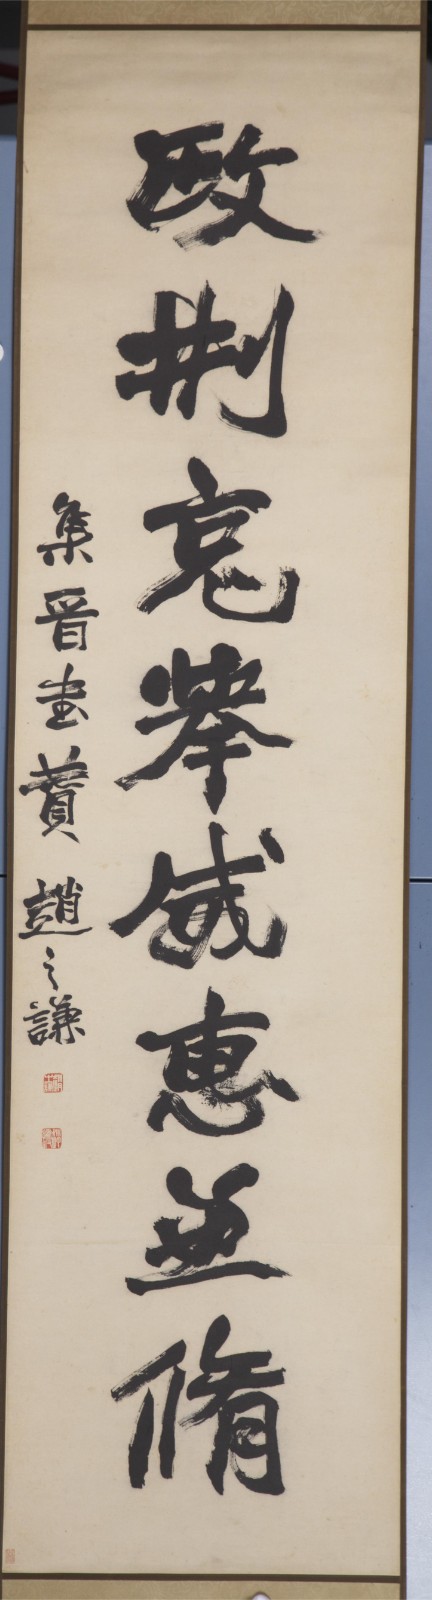 政刑克舉威惠並脩
集晉書贊趙之謙